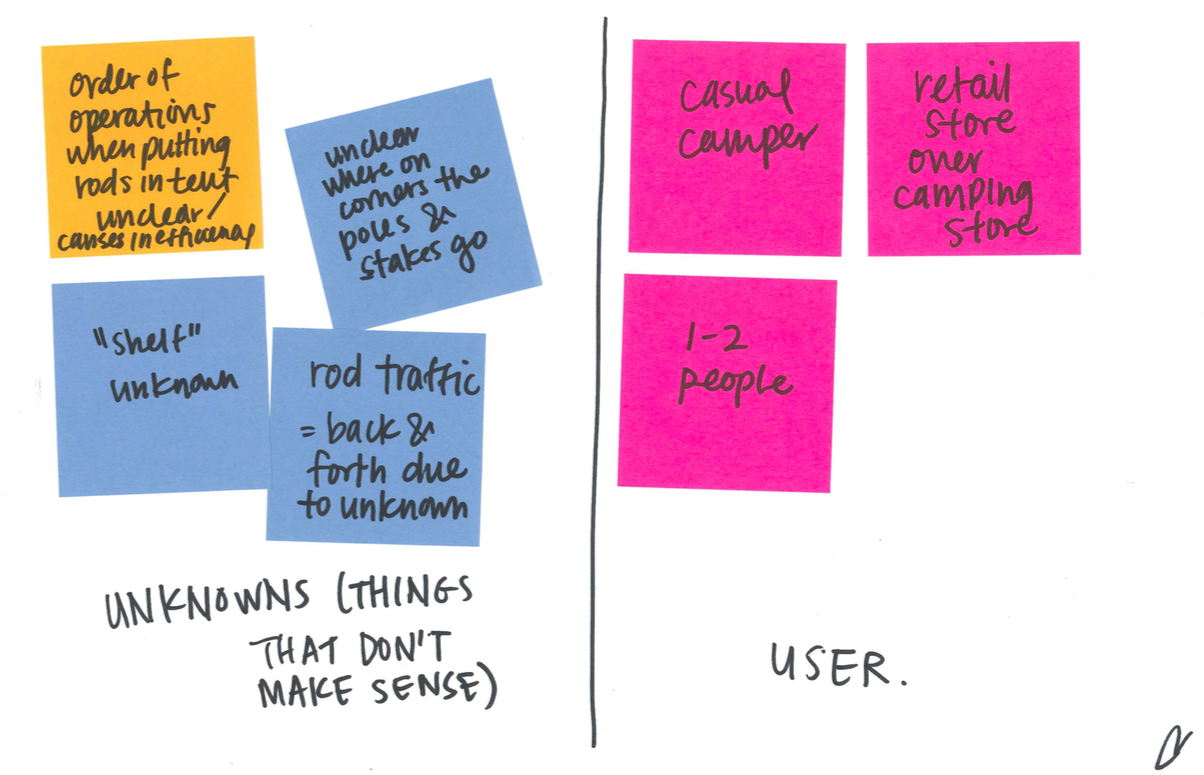 order of
operations
when putting
rods in tent
unclear/
causes inefficency
unclear
where on
corners the
poles &
stakes go
"shelf"
unknown
rod traffic
= back &
forth due
to unknown
UNKNOWNS (THINGS
THAT DON'T
MAKE SENSE)
casual
camper
retail
store
over
camping
store
1-2
people
USER.